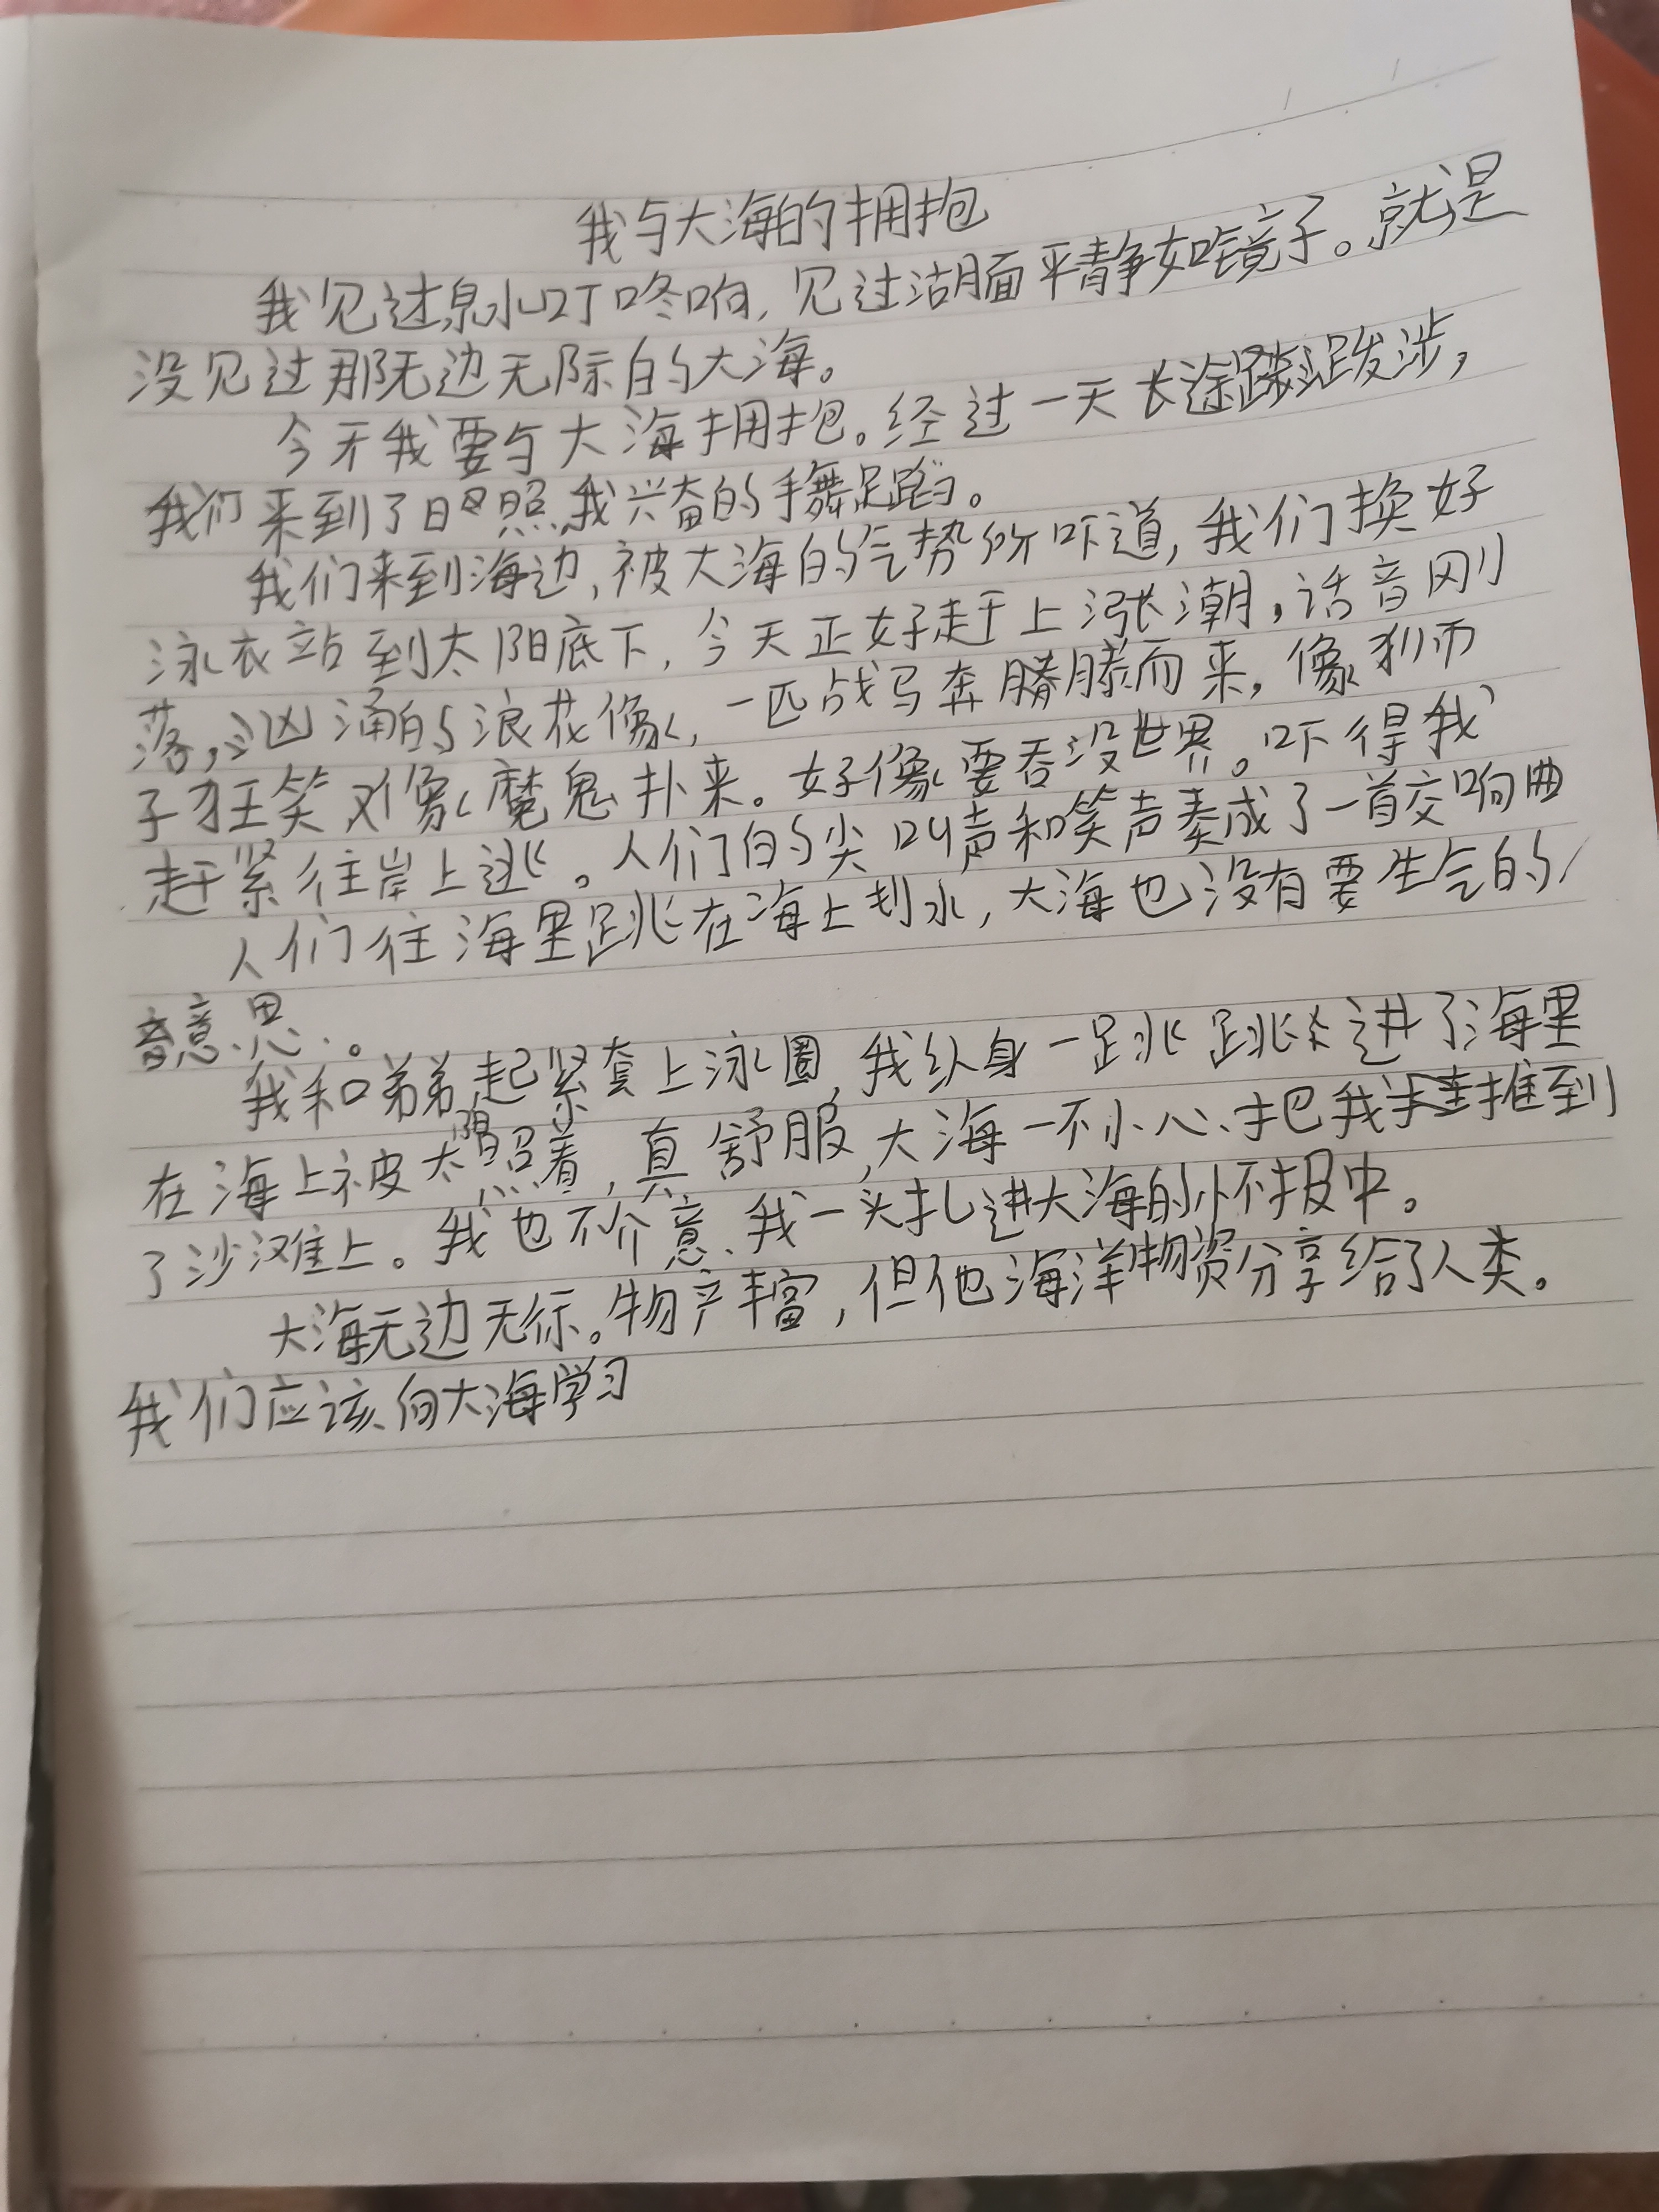 我与大海的拥抱
我见过泉水叮咚响,见过湖面平静如镜子。就是
没见过那无边无际的大海。
今天我要与大海拥抱。经过一天长途跋涉,
我们来到了日照,我兴奋的手舞足蹈。
我们来到海边,被大海的气势所吓道,我们换好
泳衣站到太阳底下,今天正好赶上涨潮,话音刚
落,汹涌的浪花像,一匹战马奔腾而来,像狮
子狂笑又像魔鬼扑来。好像要吞没世界。吓得我
赶紧往岸上逃。人们的尖叫声和笑声奏成了一首交响曲
人们往海里跳在海上划水,大海也没有要生气的
意思。
我和弟弟赶紧套上泳圈,我纵身一跳跳进了海里
在海上被太阳照着,真舒服,大海一不小心把我推到
了沙滩上。我也不介意、我一头扎进大海的怀报中。
大海无边无际。物产丰富,但他海洋物资分享给了人类。
我们应该向大海学习